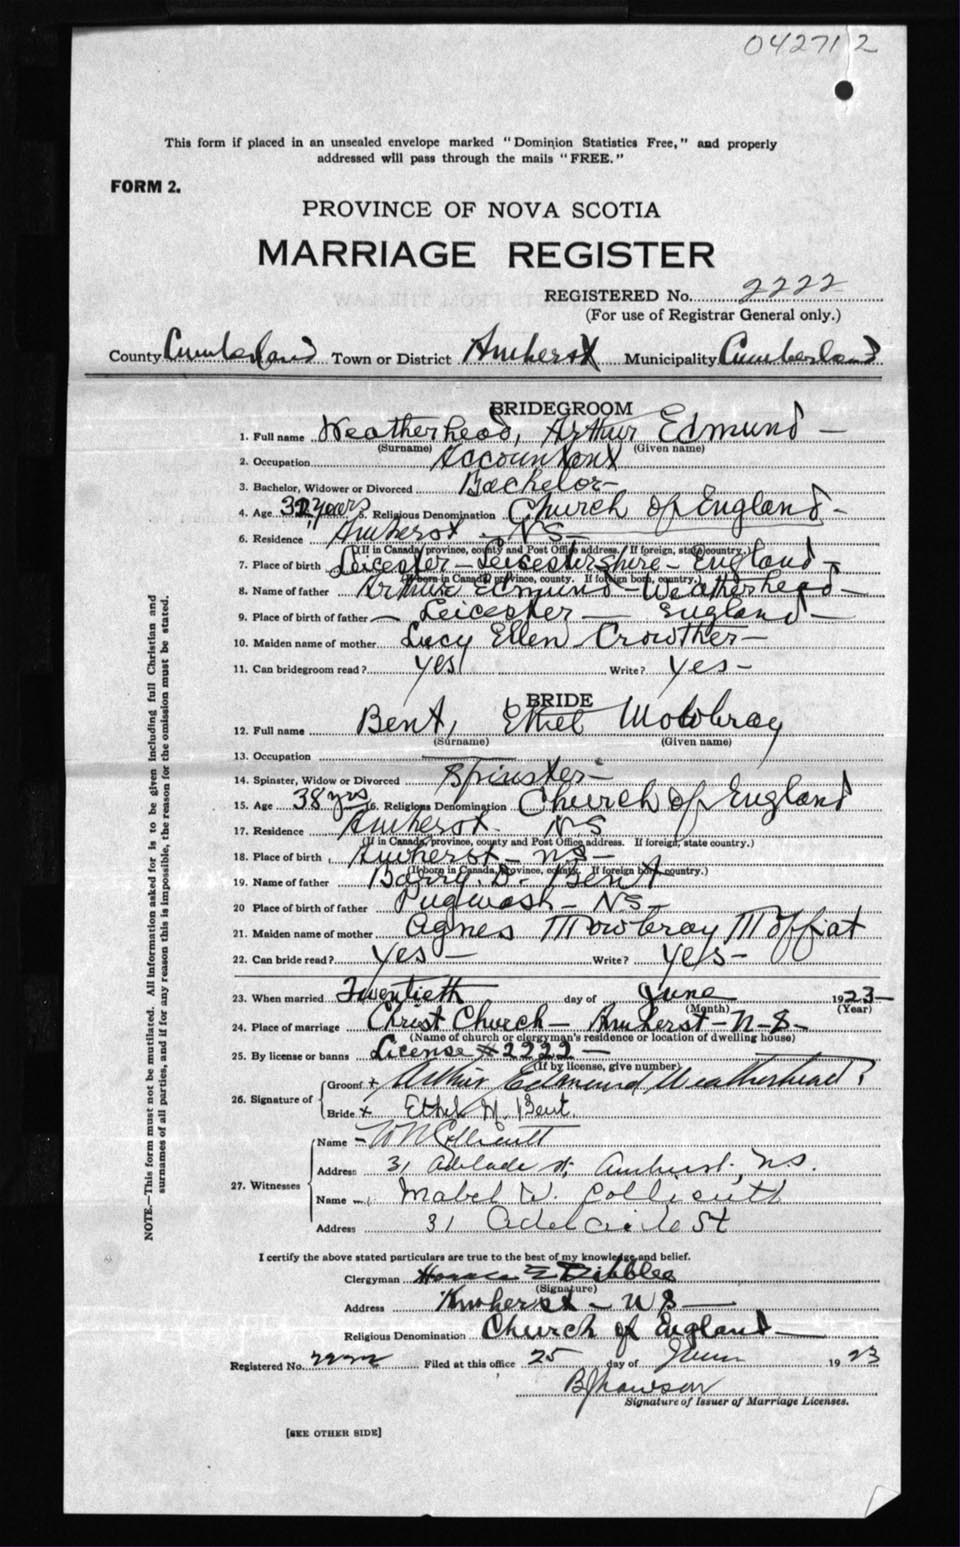 042712
This form if placed in an unsealed envelope marked "Dominion Statistics Free," and properly
addressed will pass through the mails "FREE."
FORM 2.
PROVINCE OF NOVA SCOTIA
MARRIAGE REGISTER
REGISTERED No. 2222
(For use of Registrar General only.)
County Cumberland Town or District Amherst Municipality Cumberland
BRIDEGROOM
1. Full name Weatherhead, Arthur Edmund -
(Surname) (Given name)
2. Occupation Accountant
3. Bachelor, Widower or Divorced Bachelor -
4. Age years 5. Religious Denomination Church of England -
6. Residence Amherst - NS -
(If in Canada, province, county and Post Office address. If foreign, state country.)
7. Place of birth Leicester - Leicestershire - England -
(If born in Canada, province, county. If foreign born, country.)
8. Name of father Arthur Edmund - Weatherhead -
9. Place of birth of father - Leicester - England -
10. Maiden name of mother Lucy Ellen Crowther -
11. Can bridegroom read? yes Write? yes -
BRIDE
12. Full name Bent, Ethel Mowbray
(Surname) (Given name)
13. Occupation
14. Spinster, Widow or Divorced Spinster -
15. Age 38 yrs 16. Religious Denomination Church of England
17. Residence Amherst. NS
(If in Canada, province, county and Post Office address. If foreign, state country.)
18. Place of birth Amherst - NS -
(If born in Canada, province, county. If foreign born, country.)
19. Name of father Barry. D. Bent
20 Place of birth of father Pugwash - NS -
21. Maiden name of mother Agnes Mowbray Moffat
22. Can bride read? yes - Write? yes -
23. When married Twentieth day of June 1923 -
(Month) (Year)
24. Place of marriage Christ Church - Amherst - N-S -
(Name of church or clergyman's residence or location of dwelling house)
25. By license or banns License #2222 -
(If by license, give number)
26. Signature of Groom + Arthur Edmund Weatherhead
Bride + Ethel M. Bent.
27. Witnesses Name - Collicutt
Address 31 Adelaide St, Amherst, N.S.
Name Mabel W. Collicutt
Address 31 Adelaide St
I certify the above stated particulars are true to the best of my knowledge and belief.
Clergyman Horace E Dibblee
(Signature)
Address Amherst - NS -
Religious Denomination Church of England -
Registered No. 2222 Filed at this office 25 day of June 1923
Signature of Issuer of Marriage Licenses.
[SEE OTHER SIDE]
NOTE.—This form must not be mutilated. All information asked for is to be given including full Christian and
surnames of all parties, and if for any reason this is impossible, the reason for the omission must be stated.